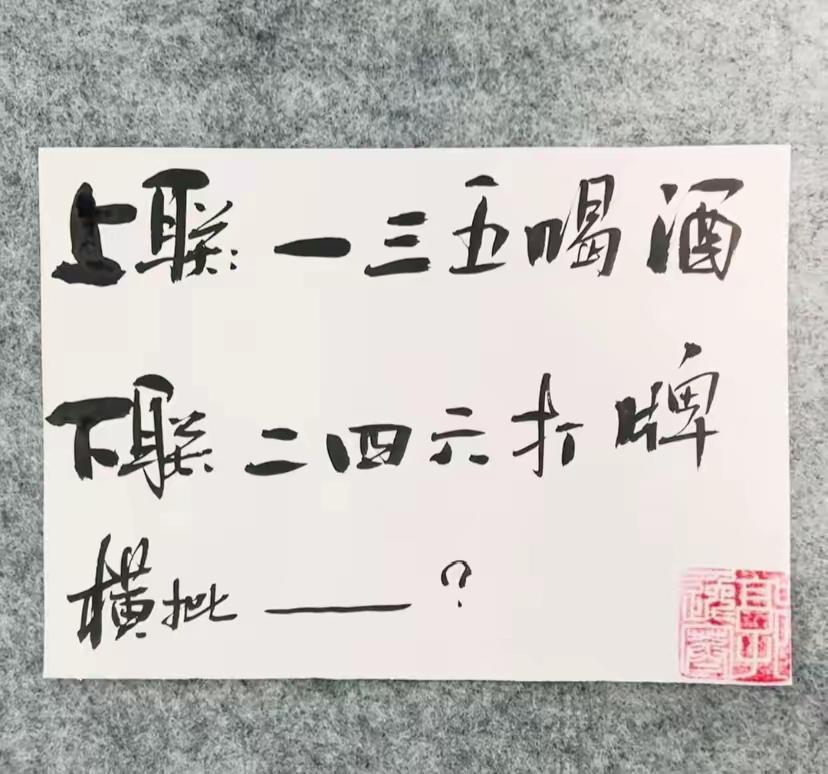 上联:一三五喝酒
下联:二四六打牌
横批____?